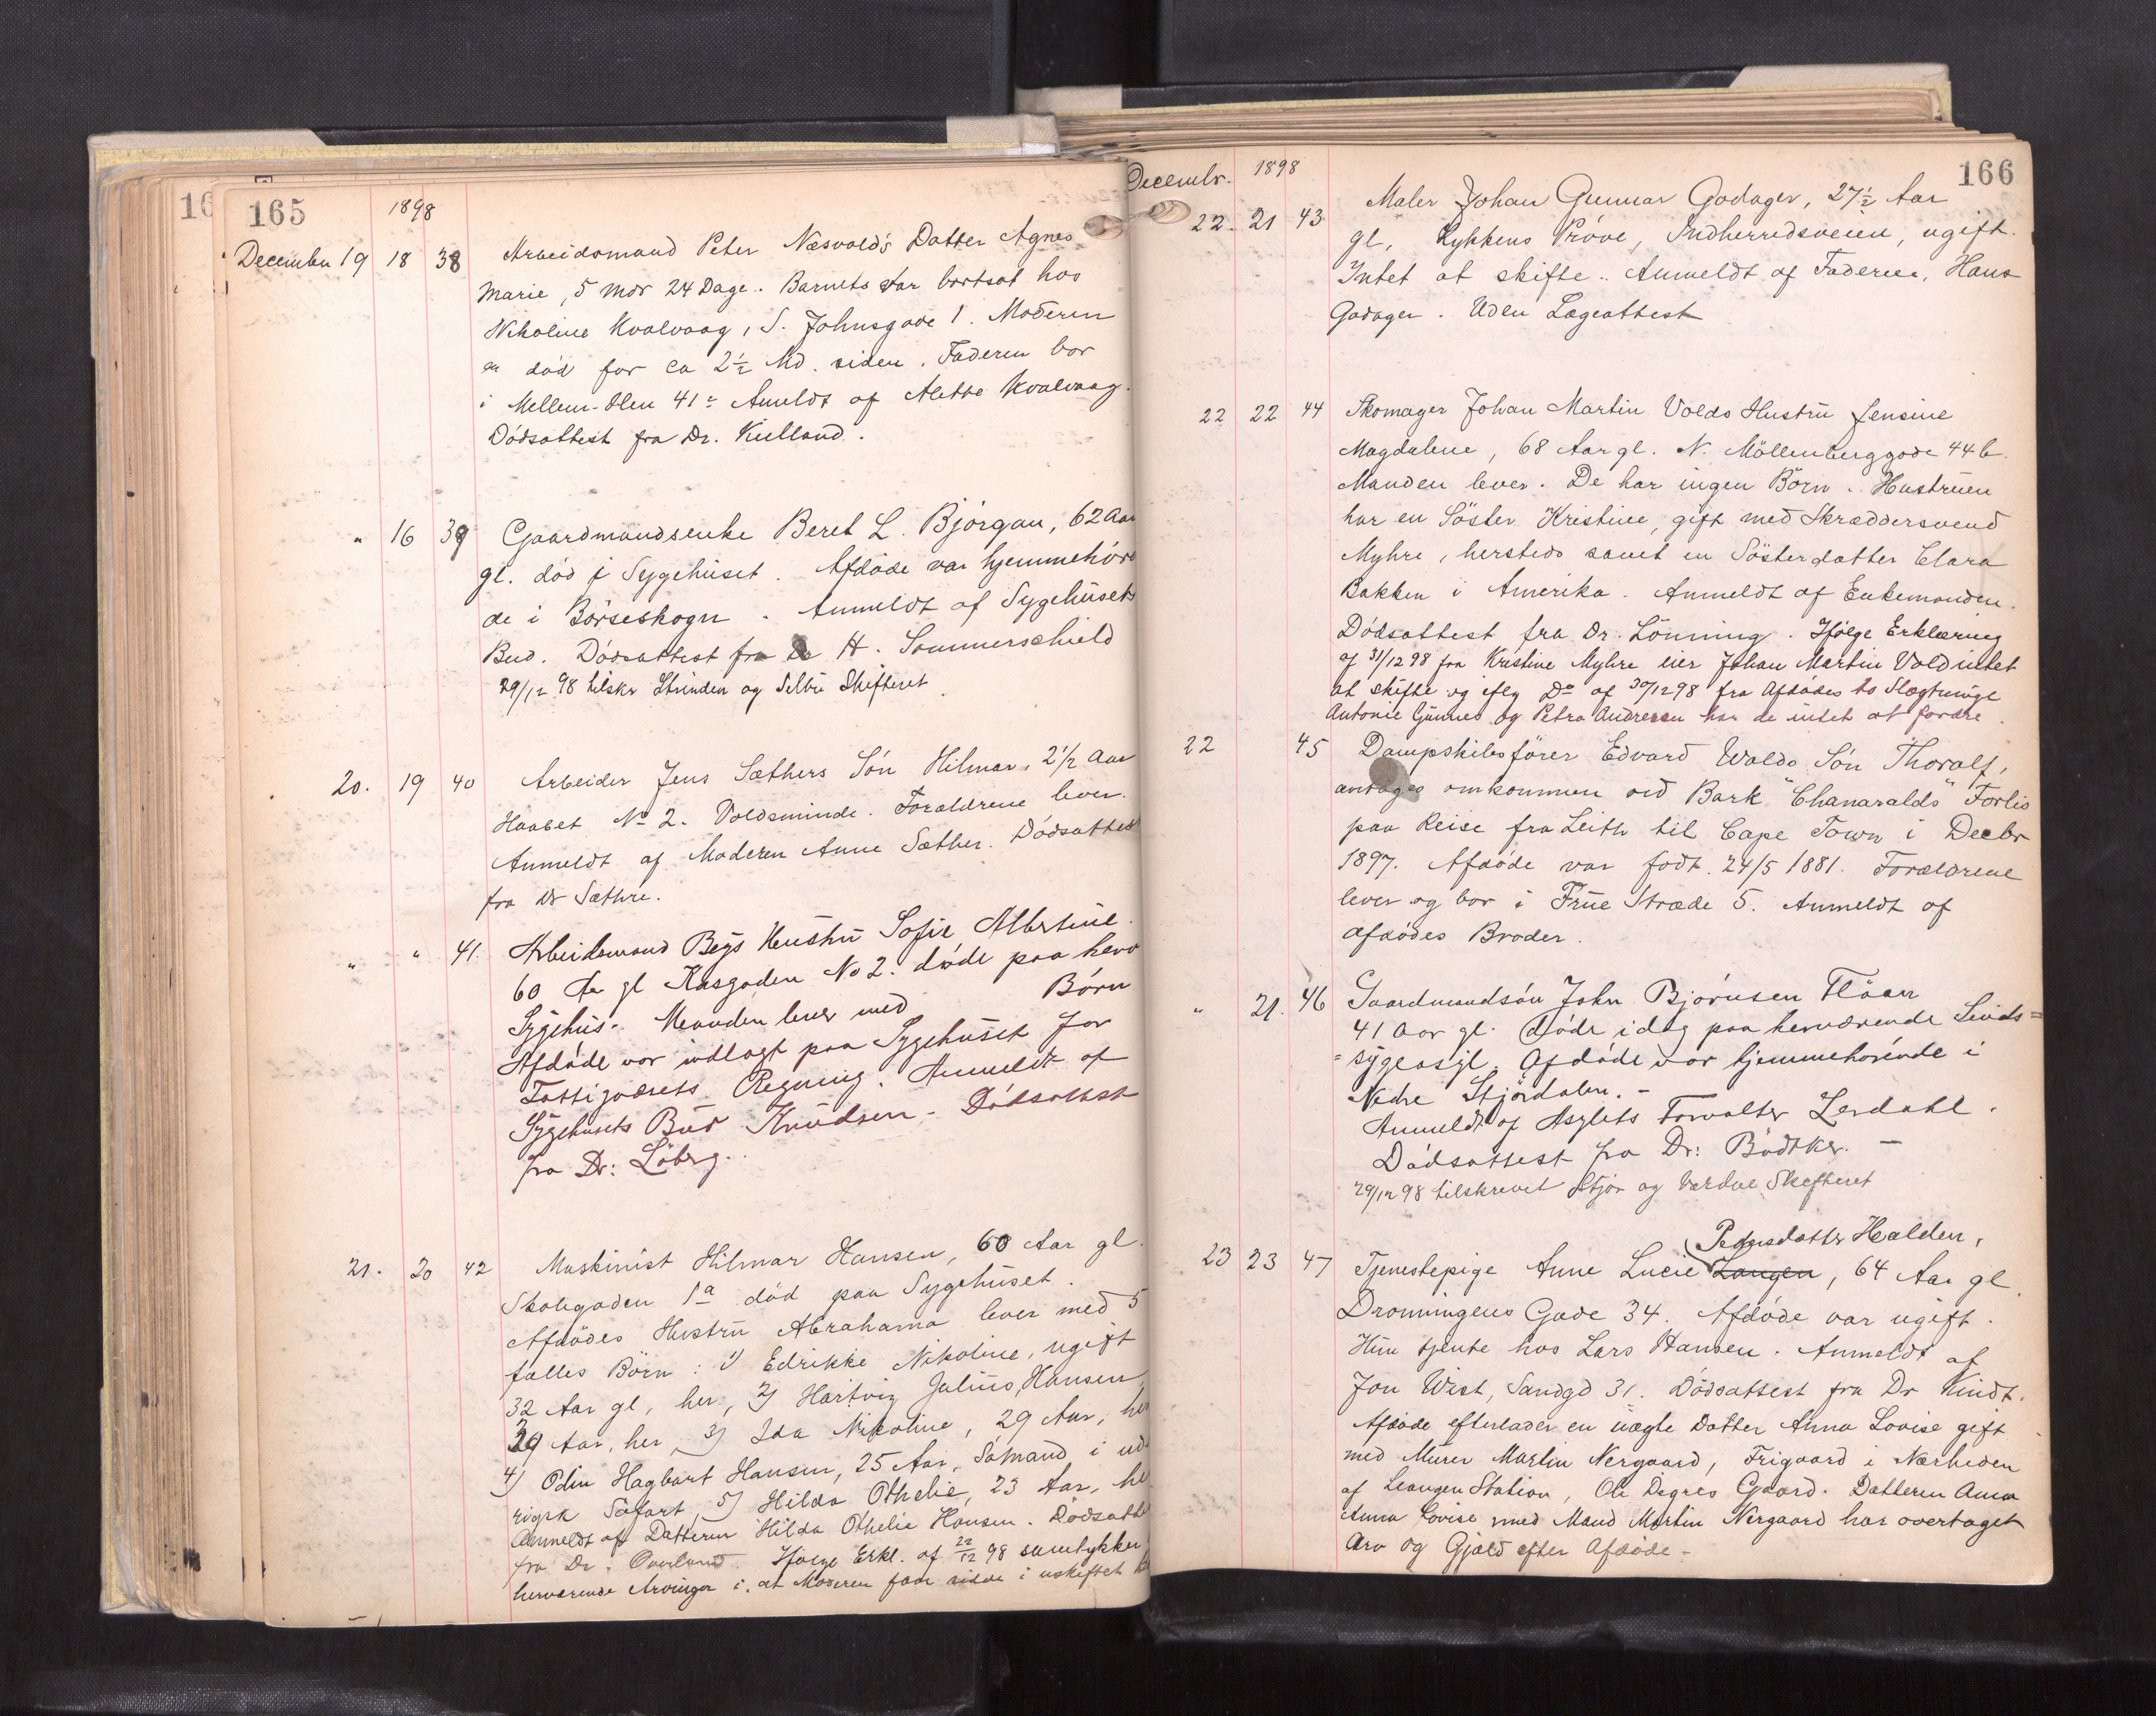 165 1898
December 19 18 38 Arbeidsmand Peter Næsvold's Datter Agnes
Marie, 5 Mdr 24 Dage. Barnets var bortsat hos
Nikoline Kvalvaag, S. Johnsgade 1. Moderen
er död for ca 2½ Md. siden. Faderen bor
i Mellem-Ilen 41ͨ Anmeldt af Alette Kvalvaag.
Dödsattest fra Dr. Kulland.
" 16 39 Gaardmandsenke Beret L. Björgan, 62 Aar
gl. död i Sygehüset. Afdöde var hjemmehören
de i Börseskogn. Anmeldt af Sygehüsets
Bud. Dödsattest fra Dr H. Sommerschield
29/12 98 tilskr Strinden og Selbu Skifteret
20. 19 40 Arbeider Jens Sæthers Sön Hilmar 2 1/2 Aar
Haabet No 2. Voldsminde. Forældrene lever.
Anmeldt af Moderen Anne Sæther. Dödsattest
fra Dr Sæthre.
" " 41. Arbeidsmand Beÿs Hustrü Sofie Albertine
60 Aar gl Rasgaden No 2. döde paa herv
Sygehüs. Manden lever med Börn
Afdöde var indlagt paa Sygehüset for
Fattigvæsets Regning. Anmeldt af
Sygehusets Bud Knüdsen - Dödsattest
fra Dr: Löberg.
21. 20 42 Maskinist Hilmar Hansen, 60 Aar gl.
Skolegaden 1a död paa Sygehüset.
Afdödes Hustrü Abrahama lever med 5
fælles Börn: 1) Edrikke Nikoline, ugift
32 Aar gl, her, 2) Hartvig Julius Hansen,
29 Aar, her, 3) Ida Nikoline, 29 Aar, her
4) Odin Hagbart Hansen, 25 Aar, Sömand i ud-
rigsk Söfart, 5) Hilda Othelie, 23 Aar, her
Anmeldt af Datteren Hilda Othelie Hansen. Dödsattest
fra Dr. Overland. Ifölge Erkl. af 22/12 98 samtykker
herværende Arvinger i, at Moderen faar sidde i uskiftet
Decembr. 1898 166
22 21 43 Maler Johan Gunnar Godager, 27½ Aar
gl, Lykkens Pröve, Indherredsveien, ugift.
Intet at skifte. Anmeldt af Faderen, Hans
Godager. Uden Lægeattest
22 22 44 Skomager Johan Martin Volds Hustrü Jensine
Magdalene, 68 Aar gl. N. Möllenberggade 44 b.
Manden lever. De har ingen Börn. Hustrüen
har en Söster Kristine, gift med Skræddersvend
Myhre, hersteds samt en Sösterdatter Clara
Bakken i Amerika. Anmeldt af Enkemanden.
Dödsattest fra Dr. Lönning. Ifölge Erklæring
af 31/12 98 fra Kristine Myhre eier Johan Martin Vold intet
at skifte og iflg Do af 30/12 98 fra Afdödes to Slægtninge
Antonie Günnes og Petra Andresen har de intet at fordre.
22 45 Dampskibsförer Edvard Walds Sön Thoralf,
antages omkommen ved Bark "Chanaralds" Forlis
paa Reise fra Leith til Cape Town i Decbr
1897. Afdöde var födt 24/5 1881. Forældrene
lever og bor i Früe Stræde 5. Anmeldt af
Afdödes Broder.
" 21. 46 Gaardmandsön John Björnsen Flöan
41 Aar gl. döde idag paa herværende Sinds=
=sygeasyl. Afdöde var hjemmehörende i
Nedre Stjördalen. -
Anmeldt af Asylets Forvalter Lerdahl.
Dödsattest fra Dr: Bödtker. -
29/12 98 tilskrevet Stjör og Værdal Skifteret
Pedersdatter Halden,
23 23 47 Tjenestepige Anne Lucie Langen, 64 Aar gl.
Dronningens Gade 34. Afdöde var ugift.
Hün tjente hos Lars Hansen. Anmeldt af
Jon Wist, Sandgd 31. Dödsattest fra Dr Kindt.
Afdöde efterlader en uægte Datter Anna Lovise gift
med Mürer Martin Nergaard, Frigaard i Nærheden
af Leangen Station, Ole Digres Gaard. Datteren Anna
Anna Lovise med Mand Martin Nergaard har overtaget
Arv og Gjæld efter Afdöde -